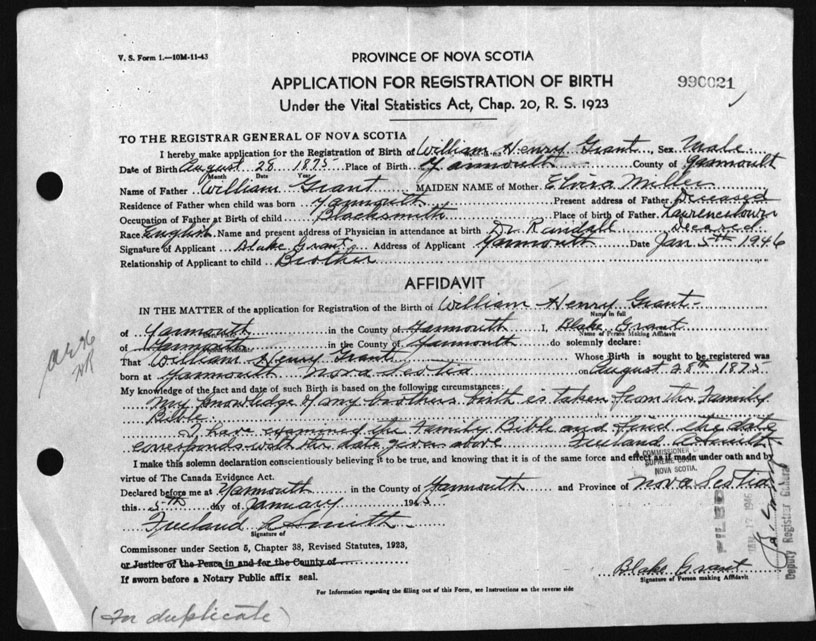 V. S. Form 1.—10M-11-43
PROVINCE OF NOVA SCOTIA
APPLICATION FOR REGISTRATION OF BIRTH
990021
Under the Vital Statistics Act, Chap. 20, R. S. 1923
TO THE REGISTRAR GENERAL OF NOVA SCOTIA
I hereby make application for the Registration of Birth of William Henry Grant Sex Male
Date of Birth August 28 1875 Place of Birth Yarmouth County of Yarmouth
Month Date Year
Name of Father William Grant MAIDEN NAME of Mother Elvira Miller
Residence of Father when child was born Yarmouth Present address of Father Deceased
Occupation of Father at Birth of child Blacksmith Place of birth of Father Lawrencetown
Race English Name and present address of Physician in attendance at birth Dr Randall Deceased
Signature of Applicant Blake Grant Address of Applicant Yarmouth Date Jan 5th 1946
Relationship of Applicant to child Brother
AFFIDAVIT
IN THE MATTER of the application for Registration of the Birth of William Henry Grant
Name in full
of Yarmouth in the County of Yarmouth I, Blake Grant
Name of Person Making Affidavit
of Yarmouth in the County of Yarmouth do solemnly declare:
That William Henry Grant Whose Birth is sought to be registered was
born at Yarmouth Nova Scotia on August 28th 1875
My knowledge of the fact and date of such Birth is based on the following circumstances:
My knowledge of my brothers birth is taken from the Family
Bible
I have examined the Family Bible and find the date
corresponds with the date given above Freeland A Smith
A COMMISSIONER
SUPREME COURT
NOVA SCOTIA.
I make this solemn declaration conscientiously believing it to be true, and knowing that it is of the same force and effect as if made under oath and by
virtue of The Canada Evidence Act.
Declared before me at Yarmouth in the County of Yarmouth and Province of Nova Scotia
this 5th day of January
Freeland A Smith
Signature of
Commissioner under Section 5, Chapter 38, Revised Statutes, 1923,
or Justice of the Peace in and for the County of
If sworn before a Notary Public affix seal.
FILED
JAN 17 1946
Deputy Registrar General
Blake Grant
Signature of Person making Affidavit
For Information regarding the filling out of this Form, see Instructions on the reverse side
(In duplicate)